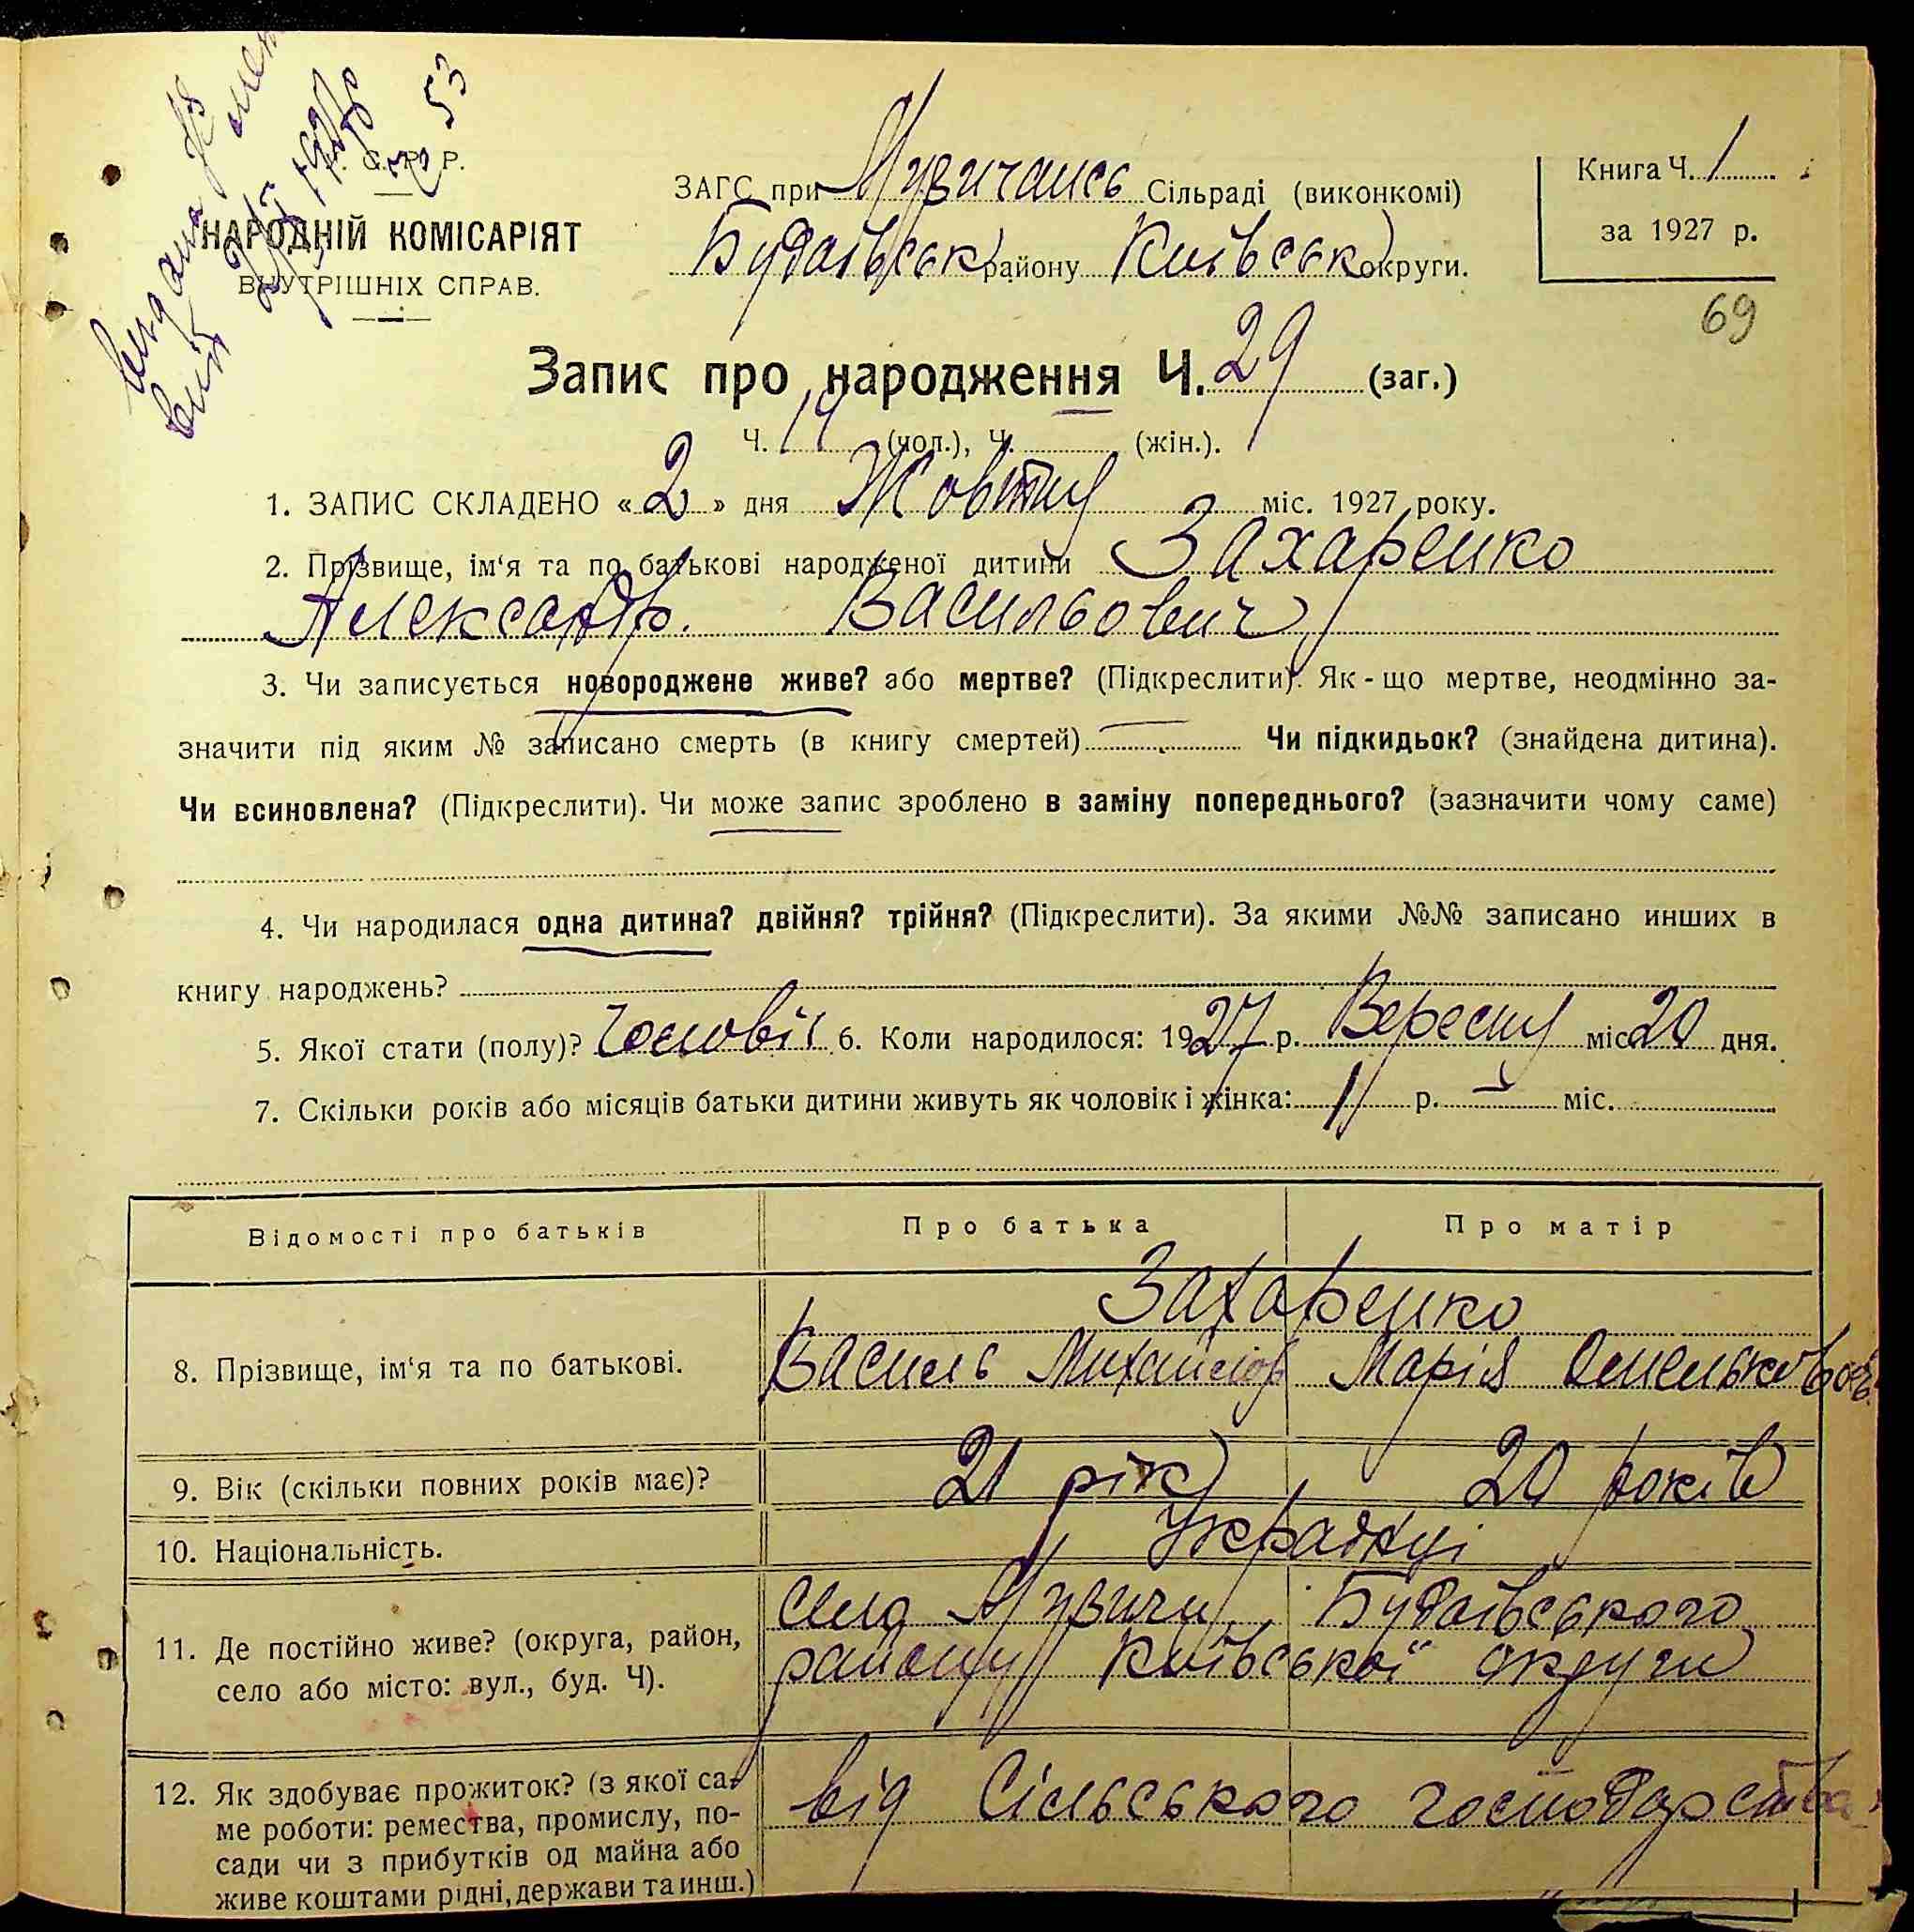 53
Р.
НАРОДНІЙ КОМІСАРІЯТ
ВНУТРІШНІХ СПРАВ.
ЗАГС при Музичансь Сільраді (виконкомі)
Будаївськ району Київськ округи.
Книга Ч. 1
за 1927 р.
69
Запис про народження Ч. 29 (заг.)
Ч. 14 (чол.), Ч. (жін.).
1. ЗАПИС СКЛАДЕНО «2» дня Жовтня міс. 1927 року.
2. Прізвище, ім‘я та по батькові народженої дитини Захаренко
Александр. Васильович
3. Чи записується новороджене живе? або мертве? (Підкреслити). Як-що мертве, неодмінно за-
значити під яким № записано смерть (в книгу смертей) Чи підкидьок? (знайдена дитина).
Чи всиновлена? (Підкреслити). Чи може запис зроблено в заміну попереднього? (зазначити чому саме)
4. Чи народилася одна дитина? двійня? трійня? (Підкреслити). За якими №№ записано инших в
книгу народжень?
5. Якої стати (полу)? Чоловіч 6. Коли народилося: 1927 р. Вересня міс 20 дня.
7. Скільки років або місяців батьки дитини живуть як чоловік і жінка: 1 р. – міс.
Відомості про батьків Про батька Про матір
Захаренко
8. Прізвище, ім‘я та по батькові. Василь Михайлов Марія Омельковов
9. Вік (скільки повних років має)? 21 рік 20 років
10. Національність. Українці
село Музичи Будаївського
11. Де постійно живе? (округа, район, району Київської округи
село або місто: вул., буд. Ч).
12. Як здобуває прожиток? (з якої са- від Сільського господарства
ме роботи: ремества, промислу, по-
сади чи з прибутків од майна або
живе коштами рідні, держави та инш.)